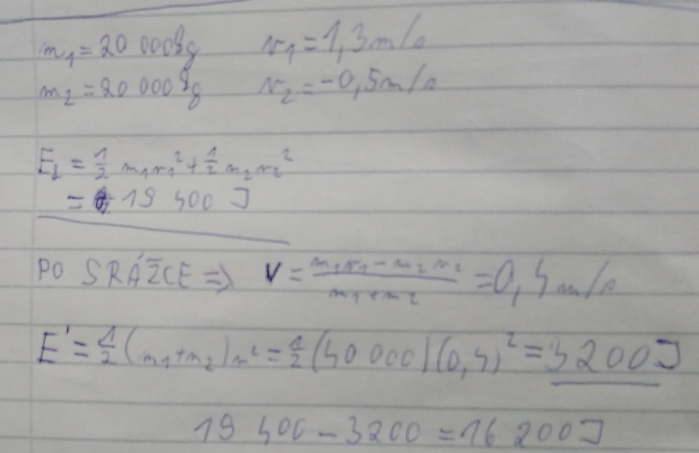 m₁ = 20 000kg v₁ = 1,3m/s
m₂ = 20 000kg v₂ = -0,5m/s
E₁ = 1/2 m₁v₁² + 1/2 m₂v₂²
= 19 400 J
PO SRÁŽCE => v = (m₁v₁ - m₂v₂)/(m₁+m₂) = 0,4m/s
E' = 1/2 (m₁+m₂)v² = 1/2 (40 000)(0,4)² = 3200J
19 400 - 3200 = 16 200J